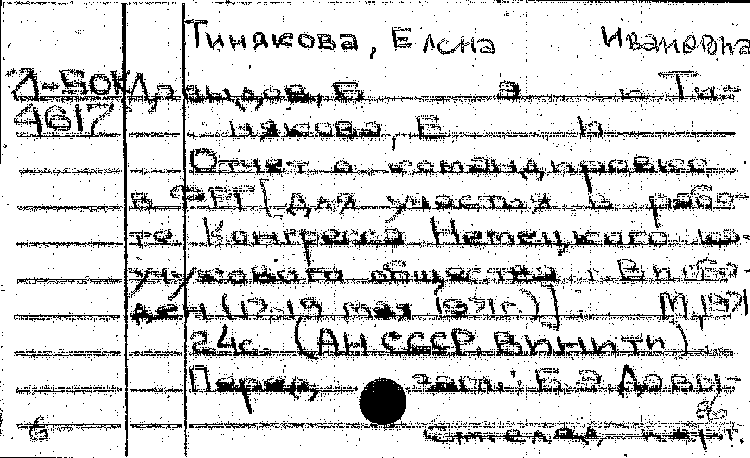 Тинякова, Елена Ивановна
Д-50к Давыдов, Б Э и Ти-
4617 някова, Е И
Отчет о командировке
в ФРГ [для участия в рабо-
те Конгресса Немецкого ка-
учукового общества г. Висба-
ден (17-19 мая 1971г.)]. М, 1971
24с. (АН СССР. ВИНИТИ).
Перед загл.: Б Э Давы-
6 См. след. карт.